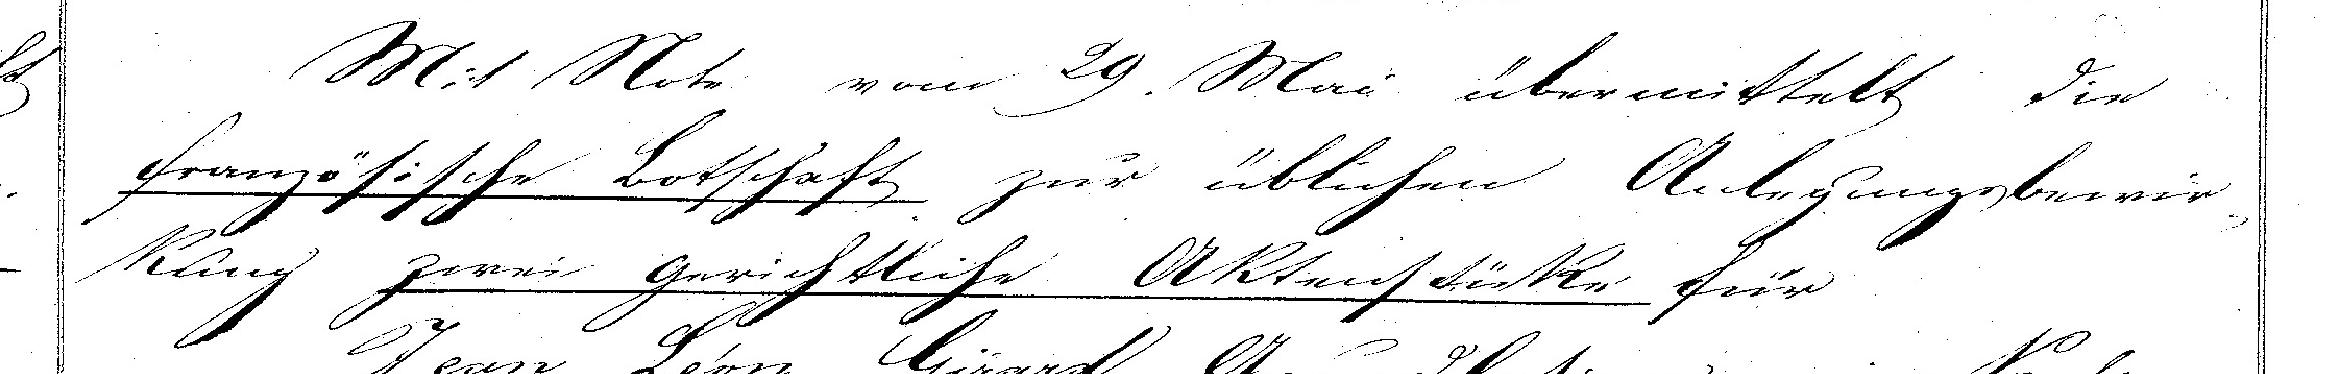 Mit Note vom 29. Mai übermittelt die
französische Botschaft zur üblichen Anlegungsbewir-
kung zwei gerichtliche Aktenstücke für
Jean Léon Girard